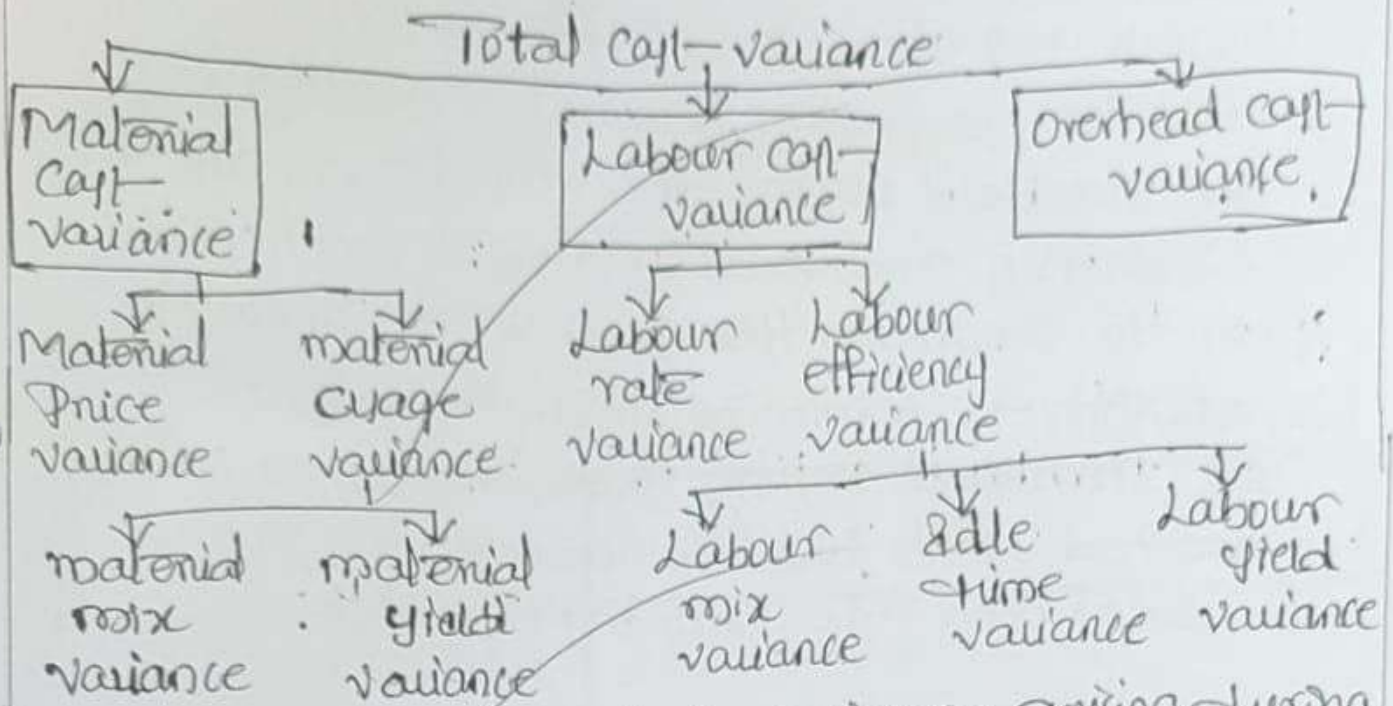 Total Cost variance
Material
Cost
variance
Labour cost
variance
Overhead cost
variance
Material
Price
variance
material
usage
variance
Labour
rate
variance
Labour
efficiency
variance
material
mix
variance
material
yield
variance
Labour
mix
variance
Idle
time
variance
Labour
yield
variance
arising during